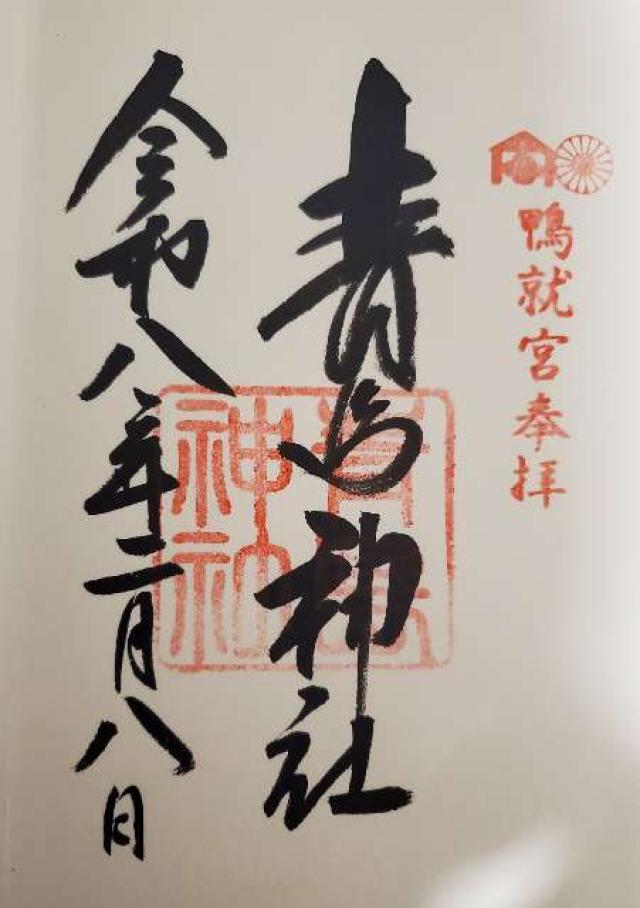 鴨就宮奉拝
青島神社
青島
神社
令和八年二月八日